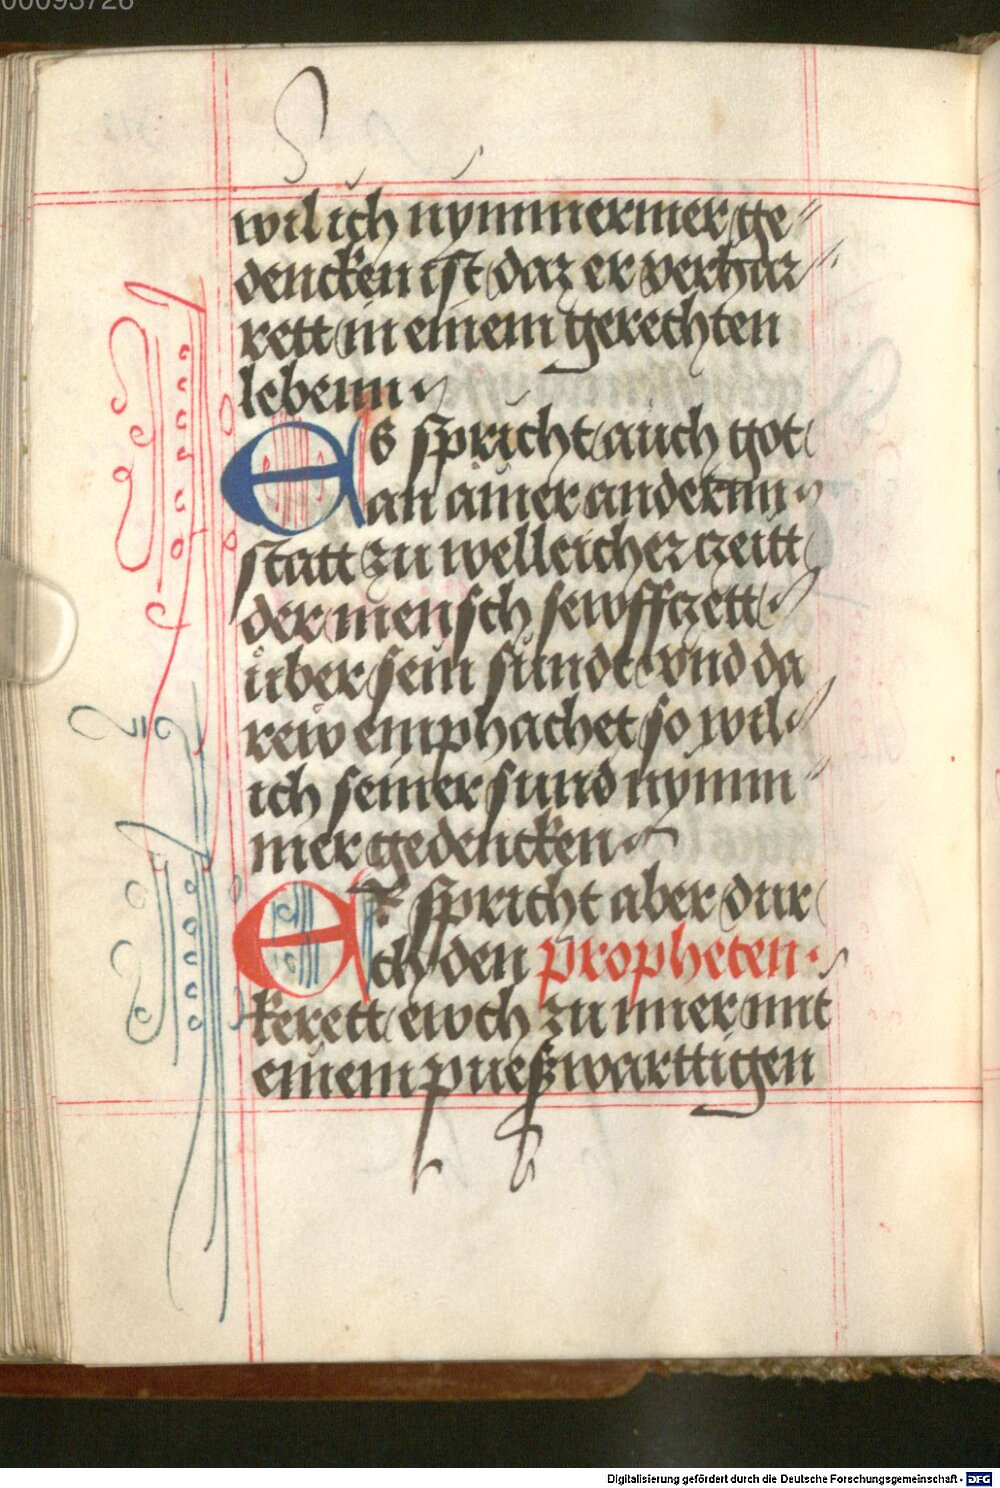 00093726
wil ich nymmermer ge〃
dencken ist daz er verhar〃
rett in einem gerechten
lebenn ·
Es spricht auch got
an ainer andernn
statt zu welleicher czeitt
der mensch sewffczett
über sein sundt vnd da
rew emphachet so wil
ich seiner sund nymm〃
mer gedencken ·
Er spricht aber dur
ch den propheten ·
kerett ewch zu mier mit
einem pueßwarttigen
Digitalisierung gefördert durch die Deutsche Forschungsgemeinschaft - DFG